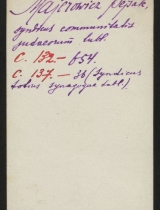 Majerowicz Pejsak,
syndicus communitatis
judaeorum lubl.
C. 132.— 654.
C. 137.— 36 (Syndicus
totius synagogae lubl.)